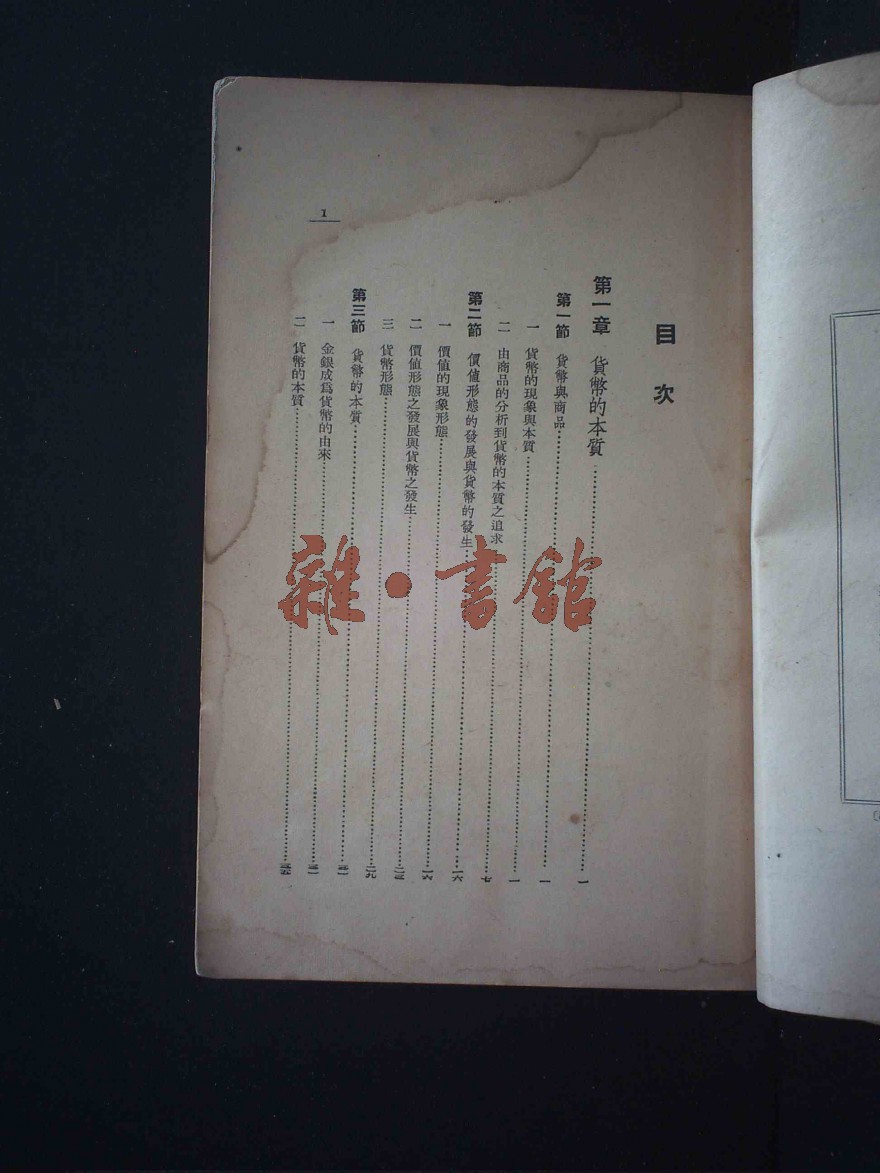 目次
第一章 貨幣的本質……一
第一節 貨幣與商品……一
一 貨幣的現象與本質……一
二 由商品的分析到貨幣的本質之追求……七
第二節 價値形態的發展與貨幣的發生……一六
一 價値的現象形態……一六
二 價値形態之發展與貨幣之發生
三 貨幣形態……二九
第三節 貨幣的本質
一 金銀成爲貨幣的由來
二 貨幣的本質
1
雜·書館